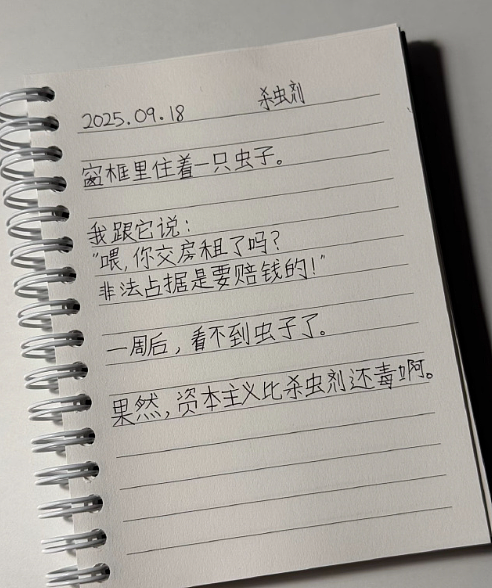 2025.09.18 杀虫剂
窗框里住着一只虫子。
我跟它说：
“喂，你交房租了吗？
非法占据是要赔钱的！”
一周后，看不到虫子了。
果然，资本主义比杀虫剂还毒啊。